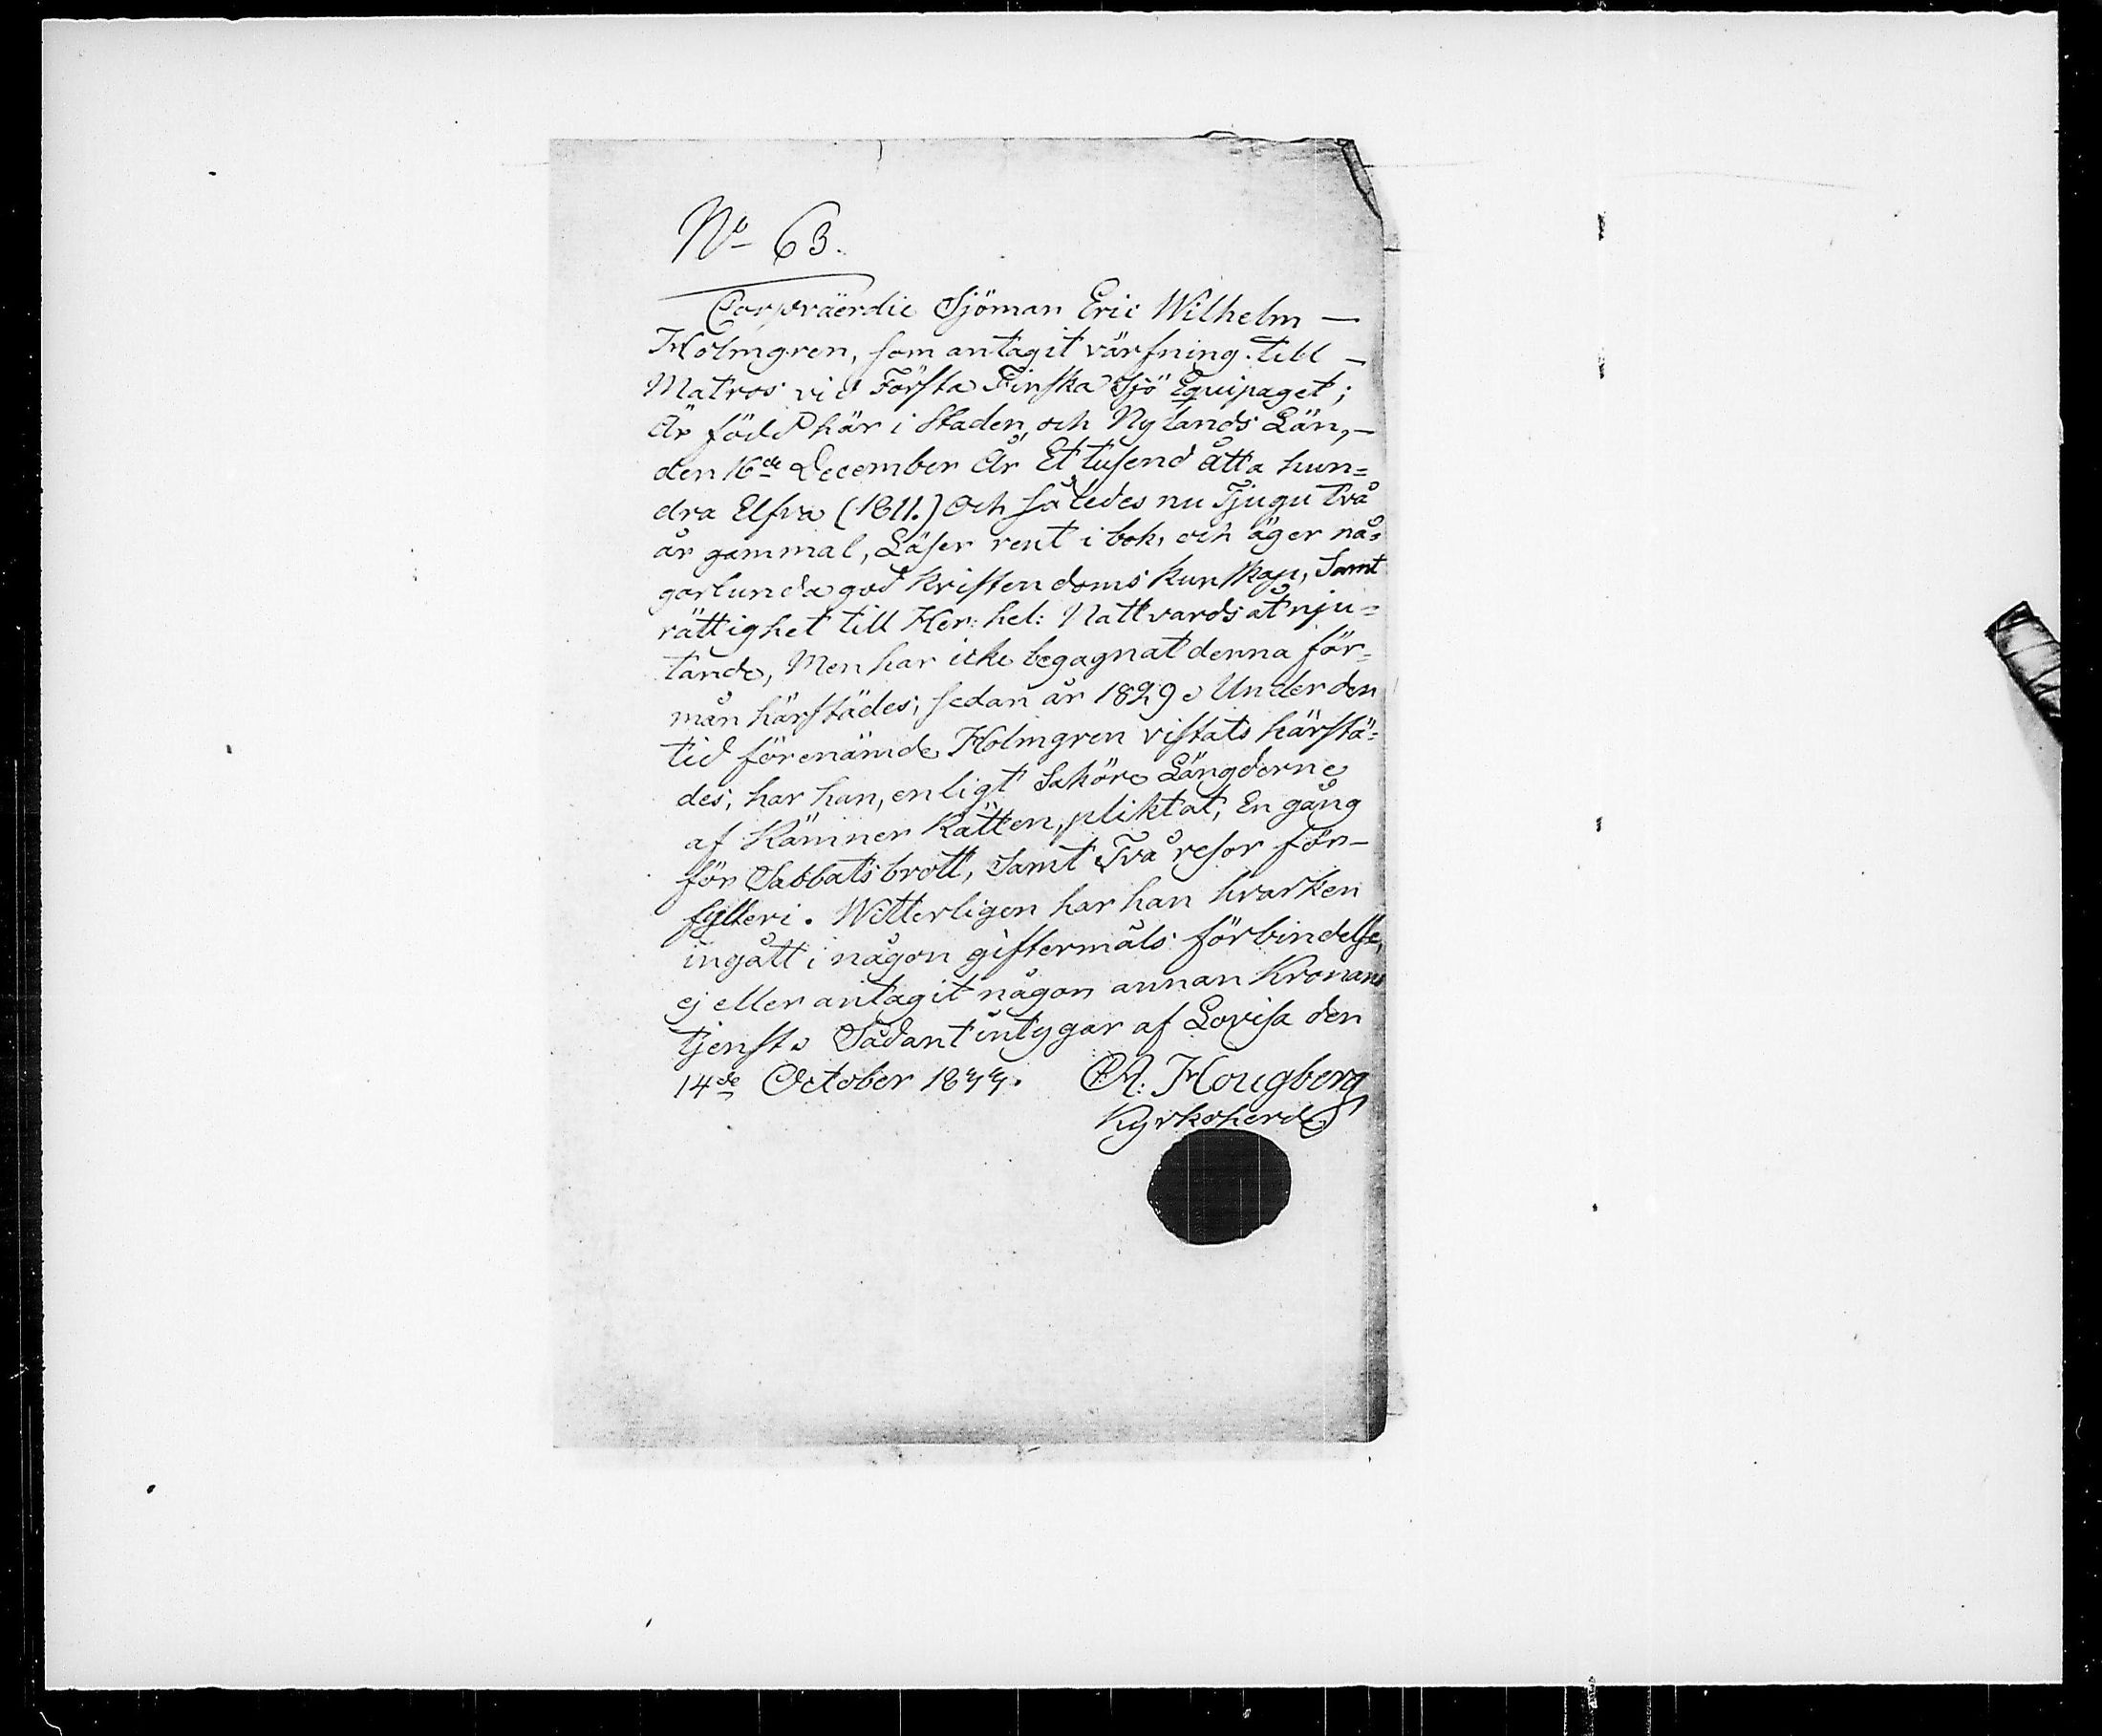 No 63.
Cofväerdie Sjöman Eric Wilhelm —
Holmgren, som antagit värfning till —
Matros vid Första Finska Sjö Equipaget;
Är född här i Staden och Nylands Län, —
den 16de December År Ettusend åtta hun=
dra Elfva (1811.) Och således nu Tjugu två
år gammal, Läser rent i bok, och äger nå=
gorlunda god Kristendoms Kunskap, Samt
rättighet till Her: hel: Nattvards åtnju=
tande, Men har icke begagnat denna för=
mån härstädes, sedan år 1829. Under den
tid förenämde Holmgren vistats härstä=
des, har han, enligt Saköre Längderne
af Kämner Rätten, pliktat, En gång
för Sabbatsbrott, Samt Två resor för —
fylleri. Witterligen har han hvarken
ingått i någon giftermåls förbindelse,
ej eller antagit någon annan Kronans
tjenst. Sådant intygar af Lovisa den
14de October 1833. A: Hougberg
Kyrkoherde.